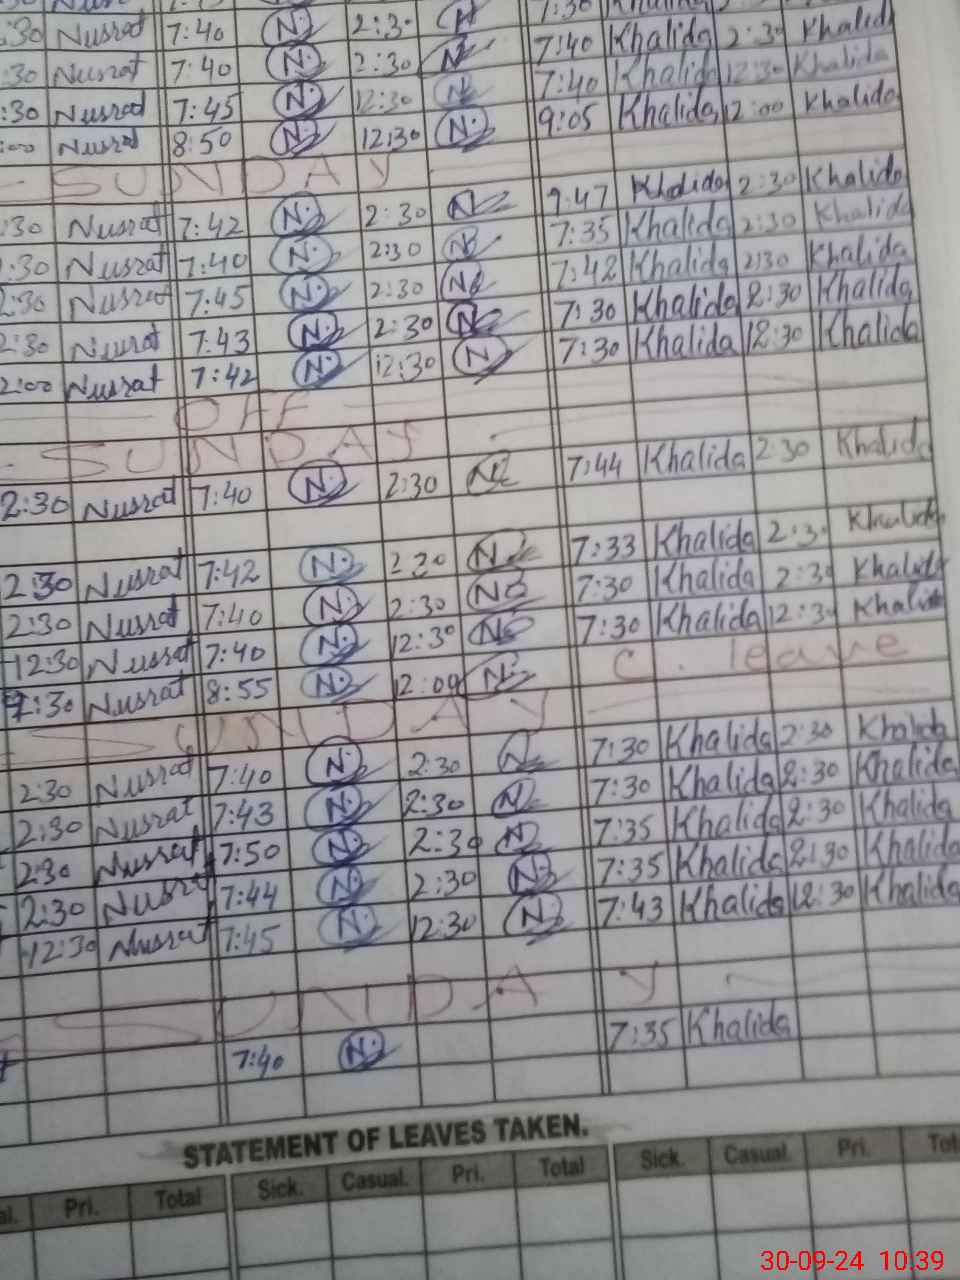 :30 Nusrat 7:40 N. 2:30 N 7:40 Khalida 2:30 Khalida
:30 Nusrat 7:40 N. 2:30 N 7:40 Khalida 12:30 Khalida
:30 Nusrat 7:45 N. 12:30 N 9:05 Khalida 12:00 Khalida
:00 Nusrat 8:50 N. 12:30 N.
SUNDAY
:30 Nusrat 7:42 N. 2:30 N 9:47 Khalida 2:30 Khalida
:30 Nusrat 7:40 N. 2:30 N 7:35 Khalida 2:30 Khalida
2:30 Nusrat 7:45 N. 2:30 N 7:42 Khalida 2:30 Khalida
2:30 Nusrat 7:43 N. 2:30 N 7:30 Khalida 2:30 Khalida
2:00 Nusrat 7:42 N. 12:30 N 7:30 Khalida 12:30 Khalida
OFF
SUNDAY
2:30 Nusrat 7:40 N. 2:30 N 7:44 Khalida 2:30 Khalida
2:30 Nusrat 7:42 N. 2:30 N 7:33 Khalida 2:30 Khalida
2:30 Nusrat 7:40 N. 2:30 N 7:30 Khalida 2:30 Khalida
12:30 Nusrat 7:40 N. 12:30 N 7:30 Khalida 12:30 Khalida
:30 Nusrat 8:55 N. 12:00 N C. leave
SUNDAY
2:30 Nusrat 7:40 N. 2:30 N 7:30 Khalida 2:30 Khalida
2:30 Nusrat 7:43 N. 2:30 N. 7:30 Khalida 2:30 Khalida
2:30 Nusrat 7:50 N. 2:30 N 7:35 Khalida 2:30 Khalida
2:30 Nusrat 7:44 N. 2:30 N. 7:35 Khalida 2:30 Khalida
12:30 Nusrat 7:45 N. 12:30 N. 7:43 Khalida 12:30 Khalida
SUNDAY
7:40 N. 7:35 Khalida
STATEMENT OF LEAVES TAKEN.
Pri. Total Sick. Casual. Pri. Total Sick. Casual. Pri. Tot
30-09-24 10:39